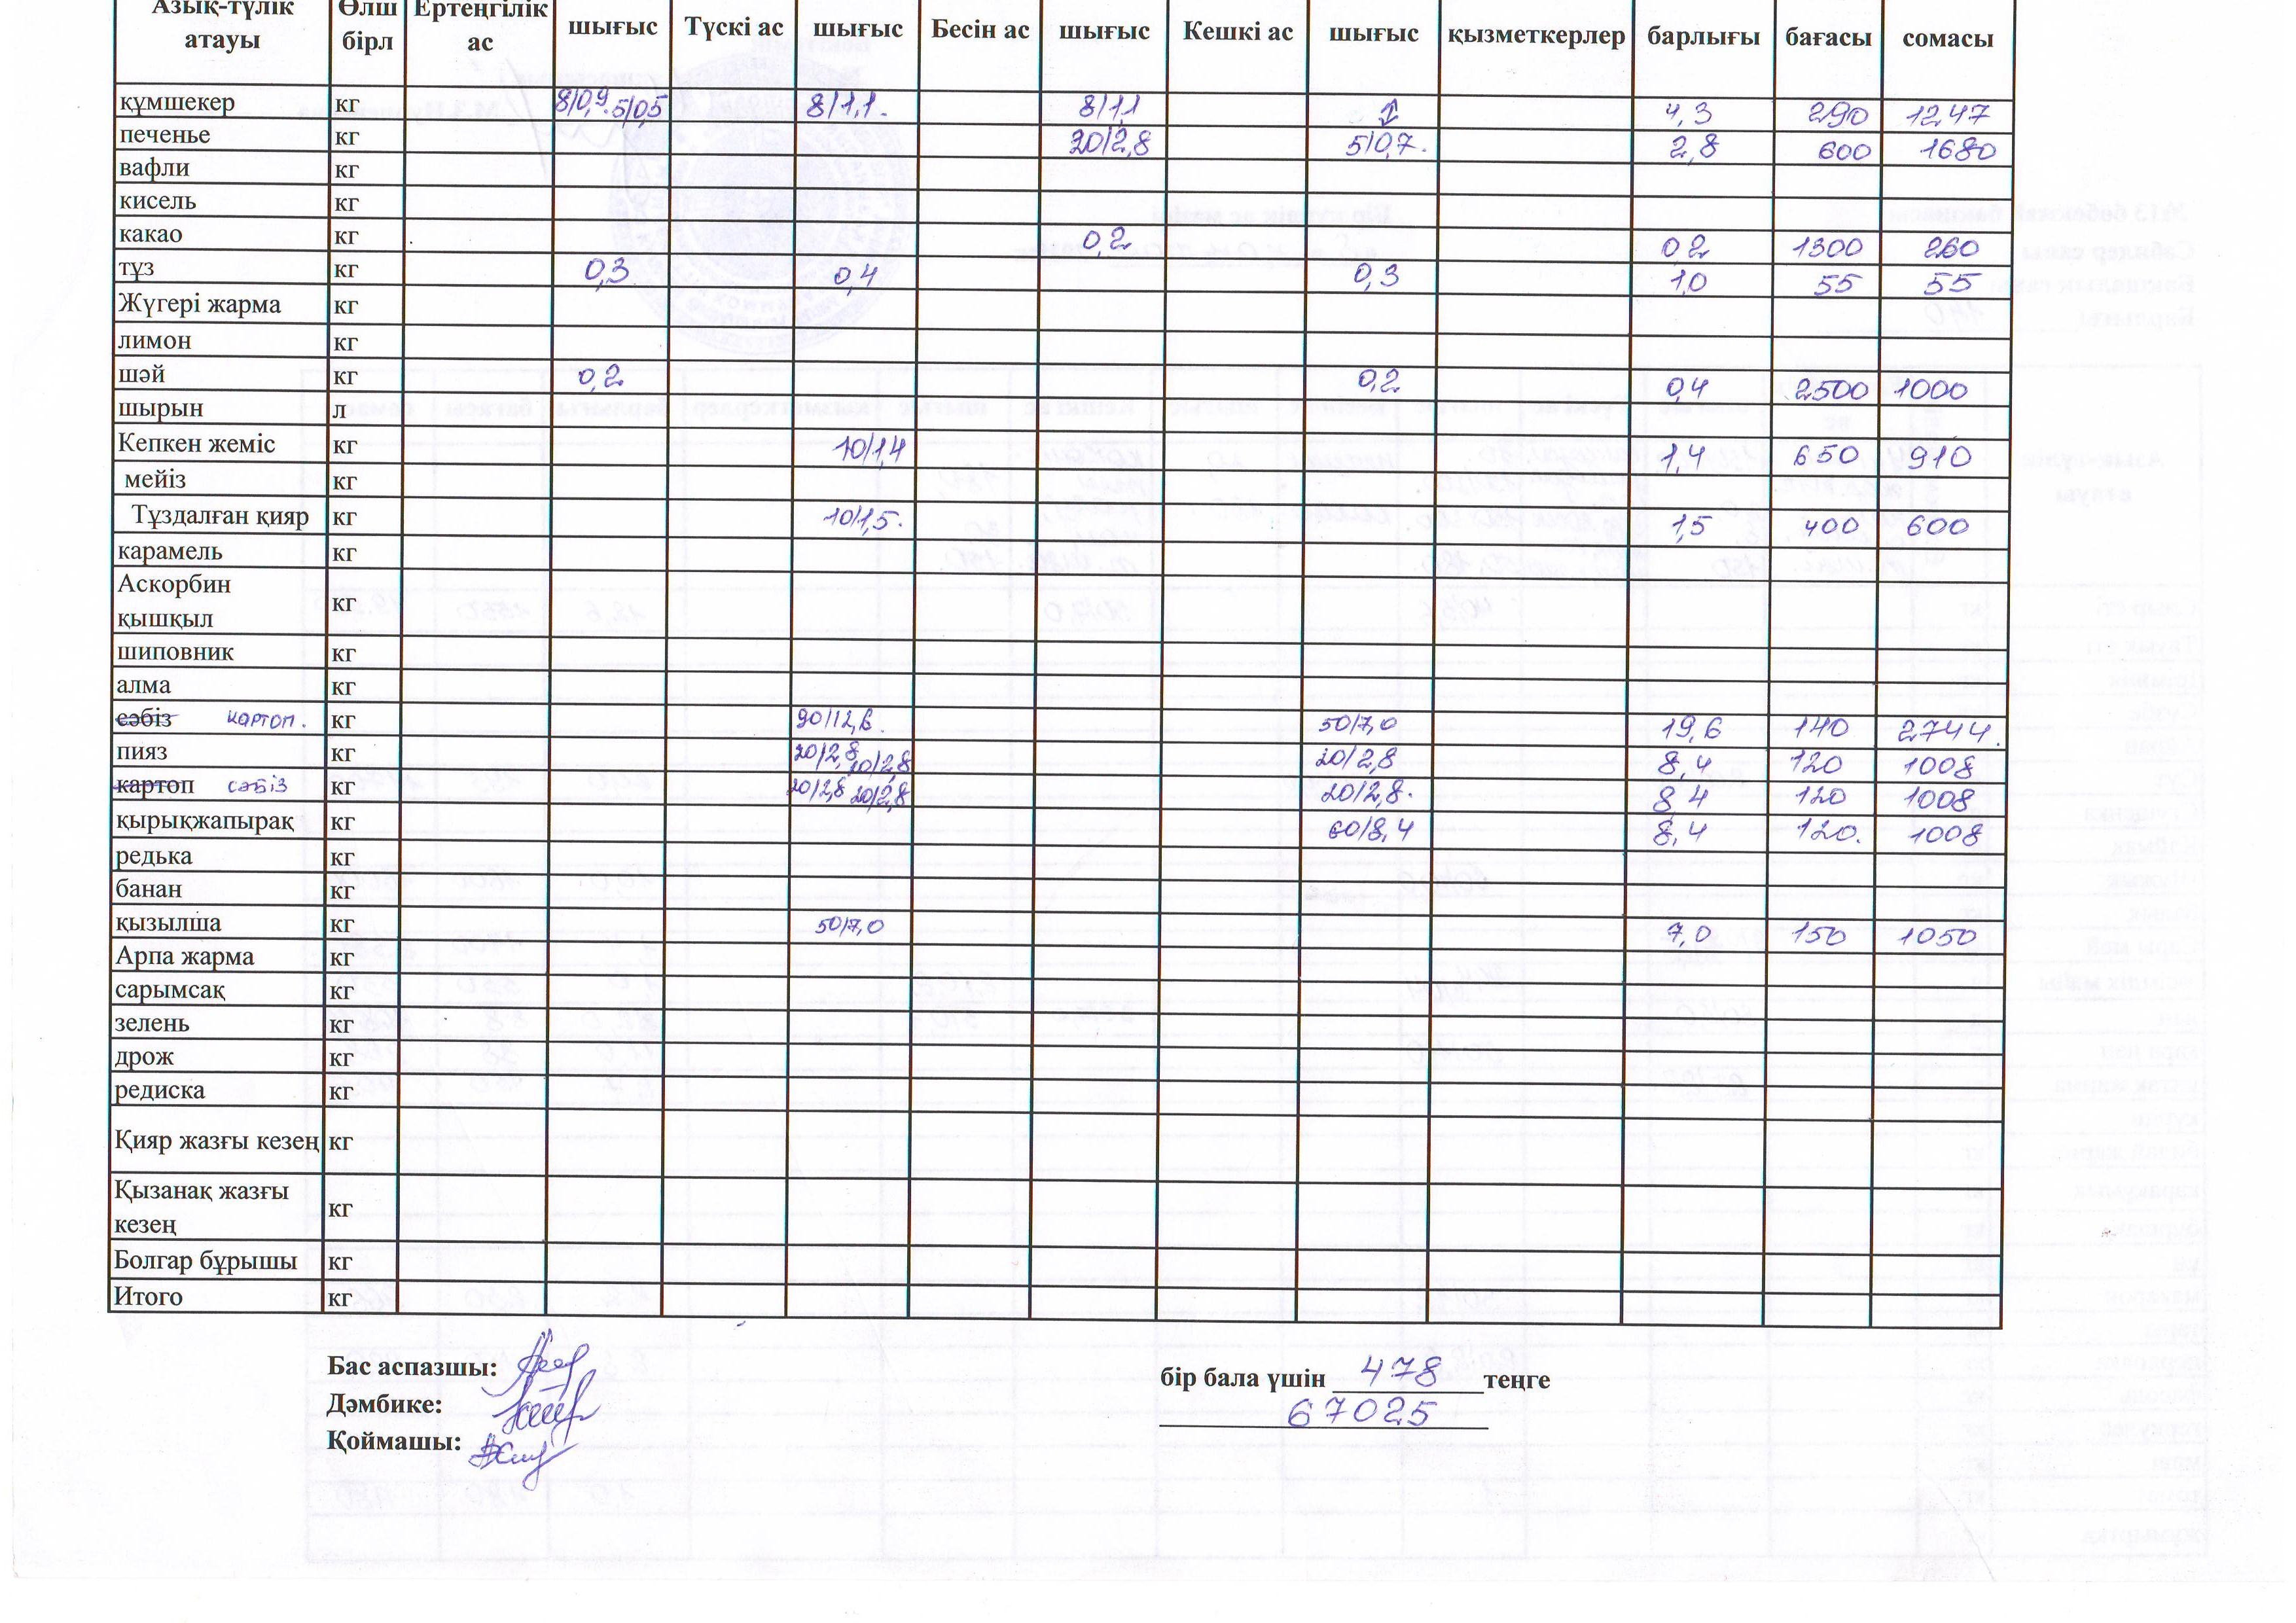 Азық-түлік атауы Өлш бірл Ертеңгілік ас шығыс Түскі ас шығыс Бесін ас шығыс Кешкі ас шығыс қызметкерлер барлығы бағасы сомасы
құмшекер кг 8/0,9. 5/0,5 8/1,1. 8/1,1 4,3 290 1247
печенье кг 20/2,8 5/0,7. 2,8 600 1680
вафли кг
кисель кг
какао кг 0,2 0,2 1300 260
тұз кг 0,3 0,4 0,3 1,0 55 55
Жүгері жарма кг
лимон кг
шәй кг 0,2 0,2 0,4 2500 1000
шырын л
Кепкен жеміс кг 10/1,4 1,4 650 910
мейіз кг
Тұздалған қияр кг 10/1,5. 1,5 400 600
карамель кг
Аскорбин қышқыл кг
шиповник кг
алма кг
сәбіз картоп. кг 90/12,6. 50/7,0 19,6 140 2744.
пияз кг 20/2,8 20/2,8 20/2,8 8,4 120 1008
картоп сәбіз кг 20/2,8 20/2,8 20/2,8. 8,4 120 1008
қырықжапырақ кг 60/8,4 8,4 120. 1008
редька кг
банан кг
қызылша кг 50/7,0 7,0 150 1050
Арпа жарма кг
сарымсақ кг
зелень кг
дрож кг
редиска кг
Қияр жазғы кезең кг
Қызанақ жазғы кезең кг
Болгар бұрышы кг
Итого кг
Бас аспазшы:
бір бала үшін 478 теңге
Дәмбике:
67025
Қоймашы: